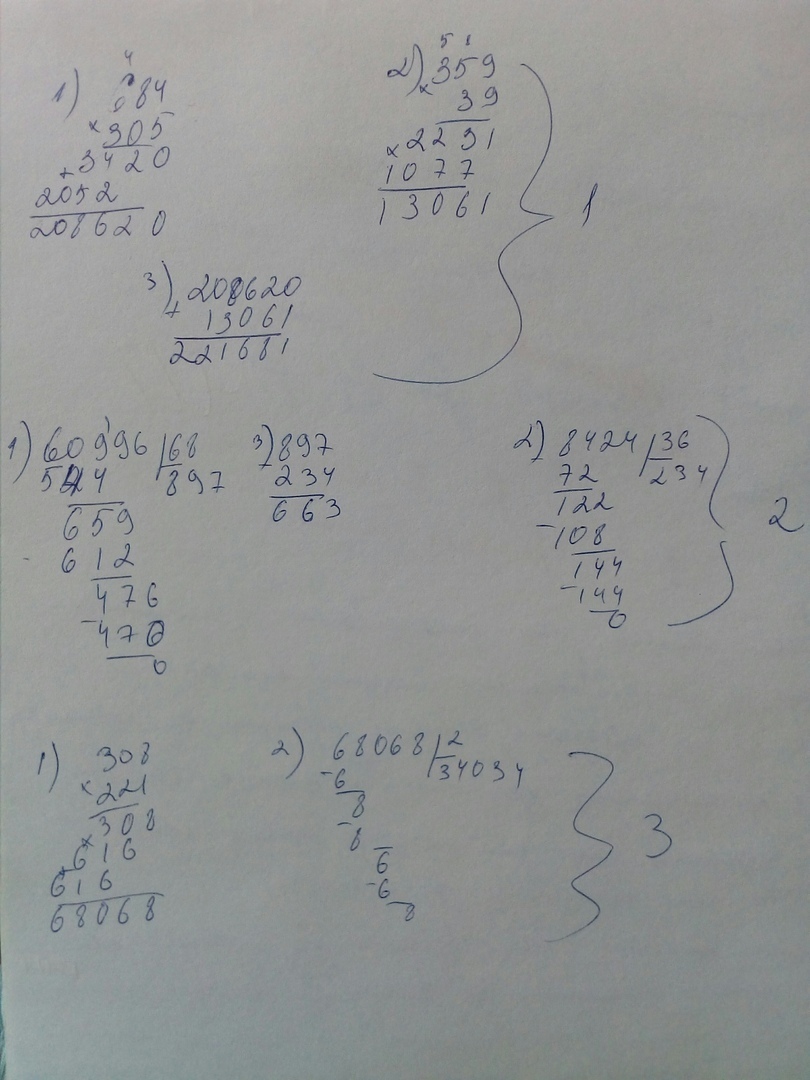 4
1) 684
× 305
+ 3420
2052
208620
5 8
2) 359
× 39
× 2231
1077
13061
1
3) 208620
+ 13061
221681
1) 60996 |68
544 897
659
- 612
476
- 476
0
3) 897
- 234
663
2) 8424 |36
72 234
122
- 108
144
- 144
0
2
1) 308
× 221
308
× 616
× 616
68068
2) 68068 |2
- 6 34034
8
- 8
6
- 6
8
3